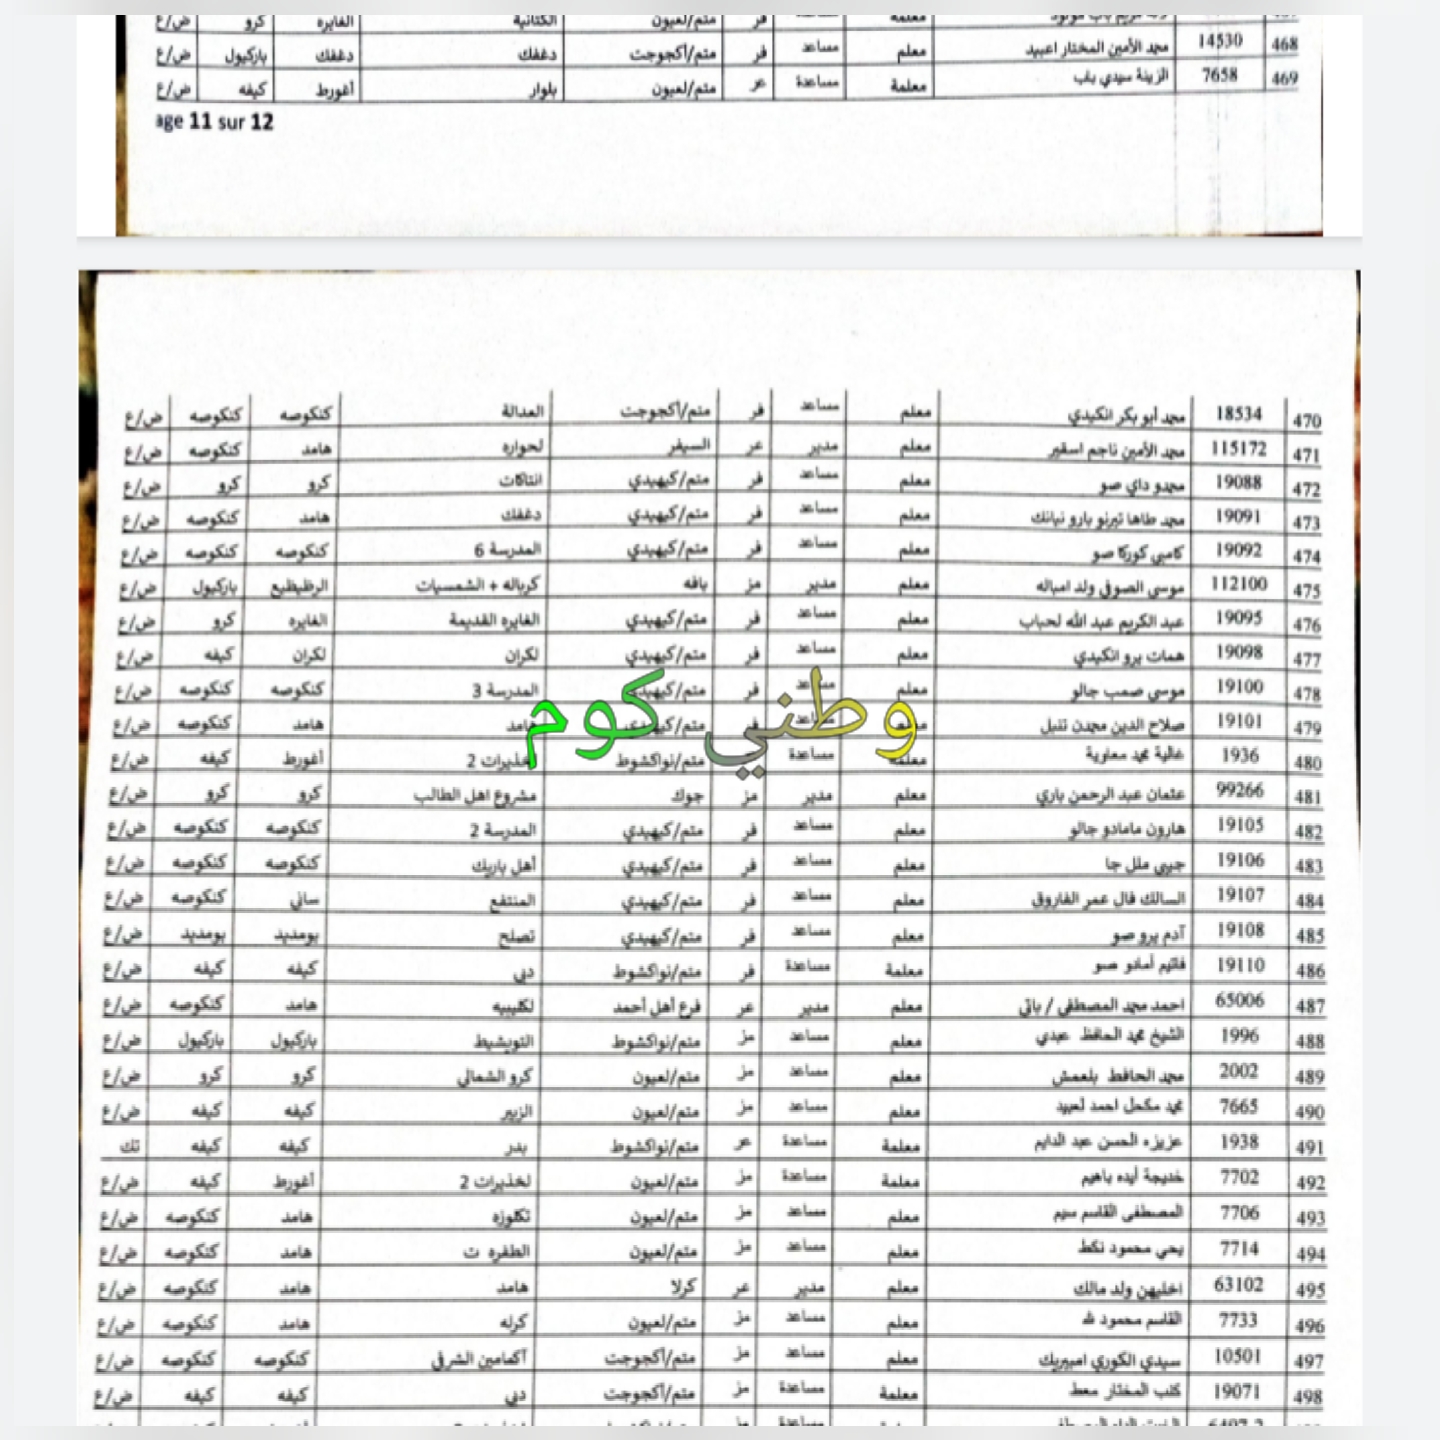 468 14530 محمد الأمين المختار اعبيد معلم مساعد فر متم/أكجوجت دغفك دغفك باركيول ض/ع
469 7658 الزينة سيدي باب معلمة مساعدة عر متم/لعيون بلوار أغورط كيفه ض/ع
age 11 sur 12
470 18534 محمد أبو بكر انكيدي معلم مساعد فر متم/أكجوجت العدالة كنكوصه كنكوصه ض/ع
471 115172 محمد الأمين ناجم اسغير معلم مدير عر السيفر لحواره هامد كنكوصه ض/ع
472 19088 محمدو داي صو معلم مساعد فر متم/كيهيدي انتاكات كرو كرو ض/ع
473 19091 محمد طاها تيرنو بارو نيانك معلم مساعد فر متم/كيهيدي دغفك هامد كنكوصه ض/ع
474 19092 كامبي كوركا صو معلم مساعد فر متم/كيهيدي المدرسة 6 كنكوصه كنكوصه ض/ع
475 112100 موسى الصوفي ولد امباله معلم مدير مز بافه كرباله + الشمسيات الرظيظيع باركيول ض/ع
476 19095 عبد الكريم عبد الله لحباب معلم مساعد فر متم/كيهيدي الغايره القديمة الغايره كرو ض/ع
477 19098 همات يرو انكيدي معلم مساعد فر متم/كيهيدي لكران لكران كيفه ض/ع
478 19100 موسى صمب جالو معلم مساعد فر متم/كيهيدي المدرسة 3 كنكوصه كنكوصه ض/ع
479 19101 صلاح الدين محمدن تنبل معلم مساعد فر متم/كيهيدي هامد هامد كنكوصه ض/ع
وطني كوم
480 1936 غالية محمد معاوية معلمة مساعدة متم/نواكشوط لخذيرات 2 أغورط كيفه ض/ع
481 99266 عثمان عبد الرحمن باري معلم مدير مز جوك مشروع اهل الطالب كرو كرو ض/ع
482 19105 هارون مامادو جالو معلم مساعد فر متم/كيهيدي المدرسة 2 كنكوصه كنكوصه ض/ع
483 19106 جيبي ملل جا معلم مساعد فر متم/كيهيدي أهل باريك كنكوصه كنكوصه ض/ع
484 19107 السالك فال عمر الفاروق معلم مساعد فر متم/كيهيدي المنتفع ساني كنكوصه ض/ع
485 19108 آدم يرو صو معلم مساعد فر متم/كيهيدي تصلح بومديد بومديد ض/ع
486 19110 فاتيم أمادو صو معلمة مساعدة فر متم/نواكشوط دبي كيفه كيفه ض/ع
487 65006 احمد محمد المصطفى / باتي معلم مدير عر فرع أهل أحمد لكليبيه هامد كنكوصه ض/ع
488 1996 الشيخ محمد الحافظ عبدي معلم مساعد مز متم/نواكشوط التويشيط باركيول باركيول ض/ع
489 2002 محمد الحافط بلعمش معلم مساعد مز متم/لعيون كرو الشمالي كرو كرو ض/ع
490 7665 محمد مكحل احمد لعبيد معلم مساعد مز متم/لعيون الزبير كيفه كيفه ض/ع
491 1938 عزيزه الحسن عبد الدايم معلمة مساعدة عر متم/نواكشوط بدر كيفه كيفه تك
492 7702 خديجة أيده باهيم معلمة مساعدة مز متم/لعيون لخذيرات 2 أغورط كيفه ض/ع
493 7706 المصطفى القاسم سيم معلم مساعد مز متم/لعيون تكلوزه هامد كنكوصه ض/ع
494 7714 يحي محمود نكط معلم مساعد مز متم/لعيون الطفره ت هامد كنكوصه ض/ع
495 63102 اخليهن ولد مالك معلم مدير عر كرلا هامد هامد كنكوصه ض/ع
496 7733 القاسم محمود معلم مساعد مز متم/لعيون كرله هامد كنكوصه ض/ع
497 10501 سيدي الكوري امبيريك معلم مساعد مز متم/أكجوجت آكمامين الشرقي كنكوصه كنكوصه ض/ع
498 19071 كلب المختار معط معلمة مساعدة مز متم/أكجوجت دبي كيفه كيفه ض/ع